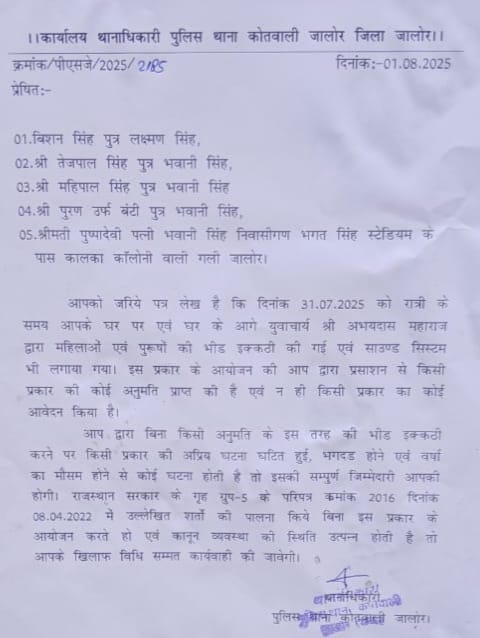 ।।कार्यालय थानाधिकारी पुलिस थाना कोतवाली जालोर जिला जालोर।।
क्रमांक/पीएसजे/2025/ 2185 दिनांक:-01.08.2025
प्रेषित:-
01.बिशन सिंह पुत्र लक्ष्मण सिंह,
02.श्री तेजपाल सिंह पुत्र भवानी सिंह,
03.श्री महिपाल सिंह पुत्र भवानी सिंह
04.श्री पुरण उर्फ बंटी पुत्र भवानी सिंह,
05.श्रीमती पुष्पादेवी पत्नी भवानी सिंह निवासीगण भगत सिंह स्टेडियम के
पास कालका कॉलोनी वाली गली जालोर।
आपको जरिये पत्र लेख है कि दिनांक 31.07.2025 को रात्री के
समय आपके घर पर एवं घर के आगे युवाचार्य श्री अभयदास महाराज
द्वारा महिलाओं एवं पुरूषों की भीड इक्कठी की गई एवं साउण्ड सिस्टम
भी लगाया गया। इस प्रकार के आयोजन की आप द्वारा प्रसाशन से किसी
प्रकार की कोई अनुमति प्राप्त की है एवं न ही किसी प्रकार का कोई
आवेदन किया है।
आप द्वारा बिना किसी अनुमति के इस तरह की भीड इक्कठी
करने पर किसी प्रकार की अप्रिय घटना घटित हुई, भगदड होने एवं वर्षा
का मौसम होने से कोई घटना होती है तो इसकी सम्पुर्ण जिम्मेदारी आपकी
होगी। राजस्थान सरकार के गृह ग्रुप-5 के परिपत्र कमांक 2016 दिनांक
08.04.2022 में उल्लेखित शर्तो की पालना किये बिना इस प्रकार के
आयोजन करते हो एवं कानून व्यवस्था की स्थिति उत्पन्न होती है तो
आपके खिलाफ विधि सम्मत कार्यवाही की जावेगी।
थानाधिकारी
पुलिस थाना कोतवाली जालोर।